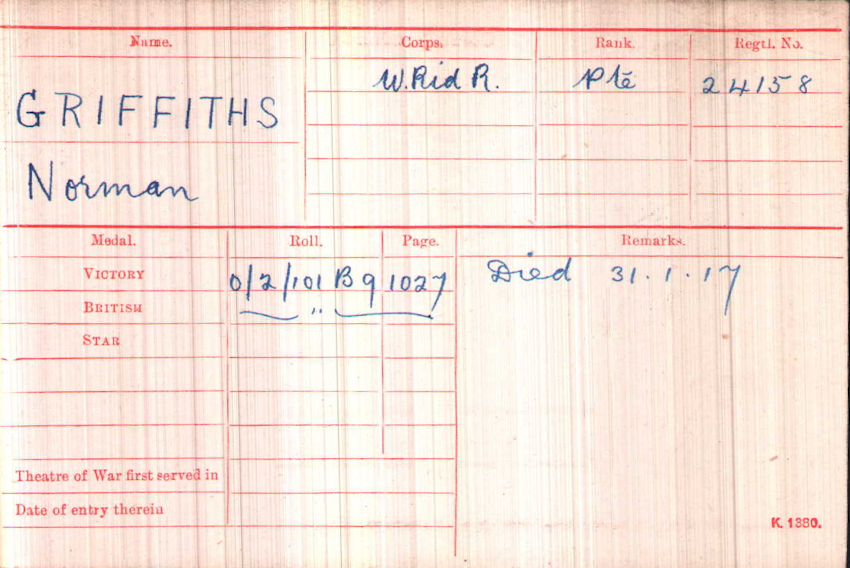 Name. Corps. Rank. Regtl. No.
GRIFFITHS W.Rid R. Pte 24158
Norman
Medal. Roll. Page. Remarks.
VICTORY 0/2/101 B9 1027 Died 31.1.17
BRITISH "
STAR
Theatre of War first served in
Date of entry therein
K. 1380.